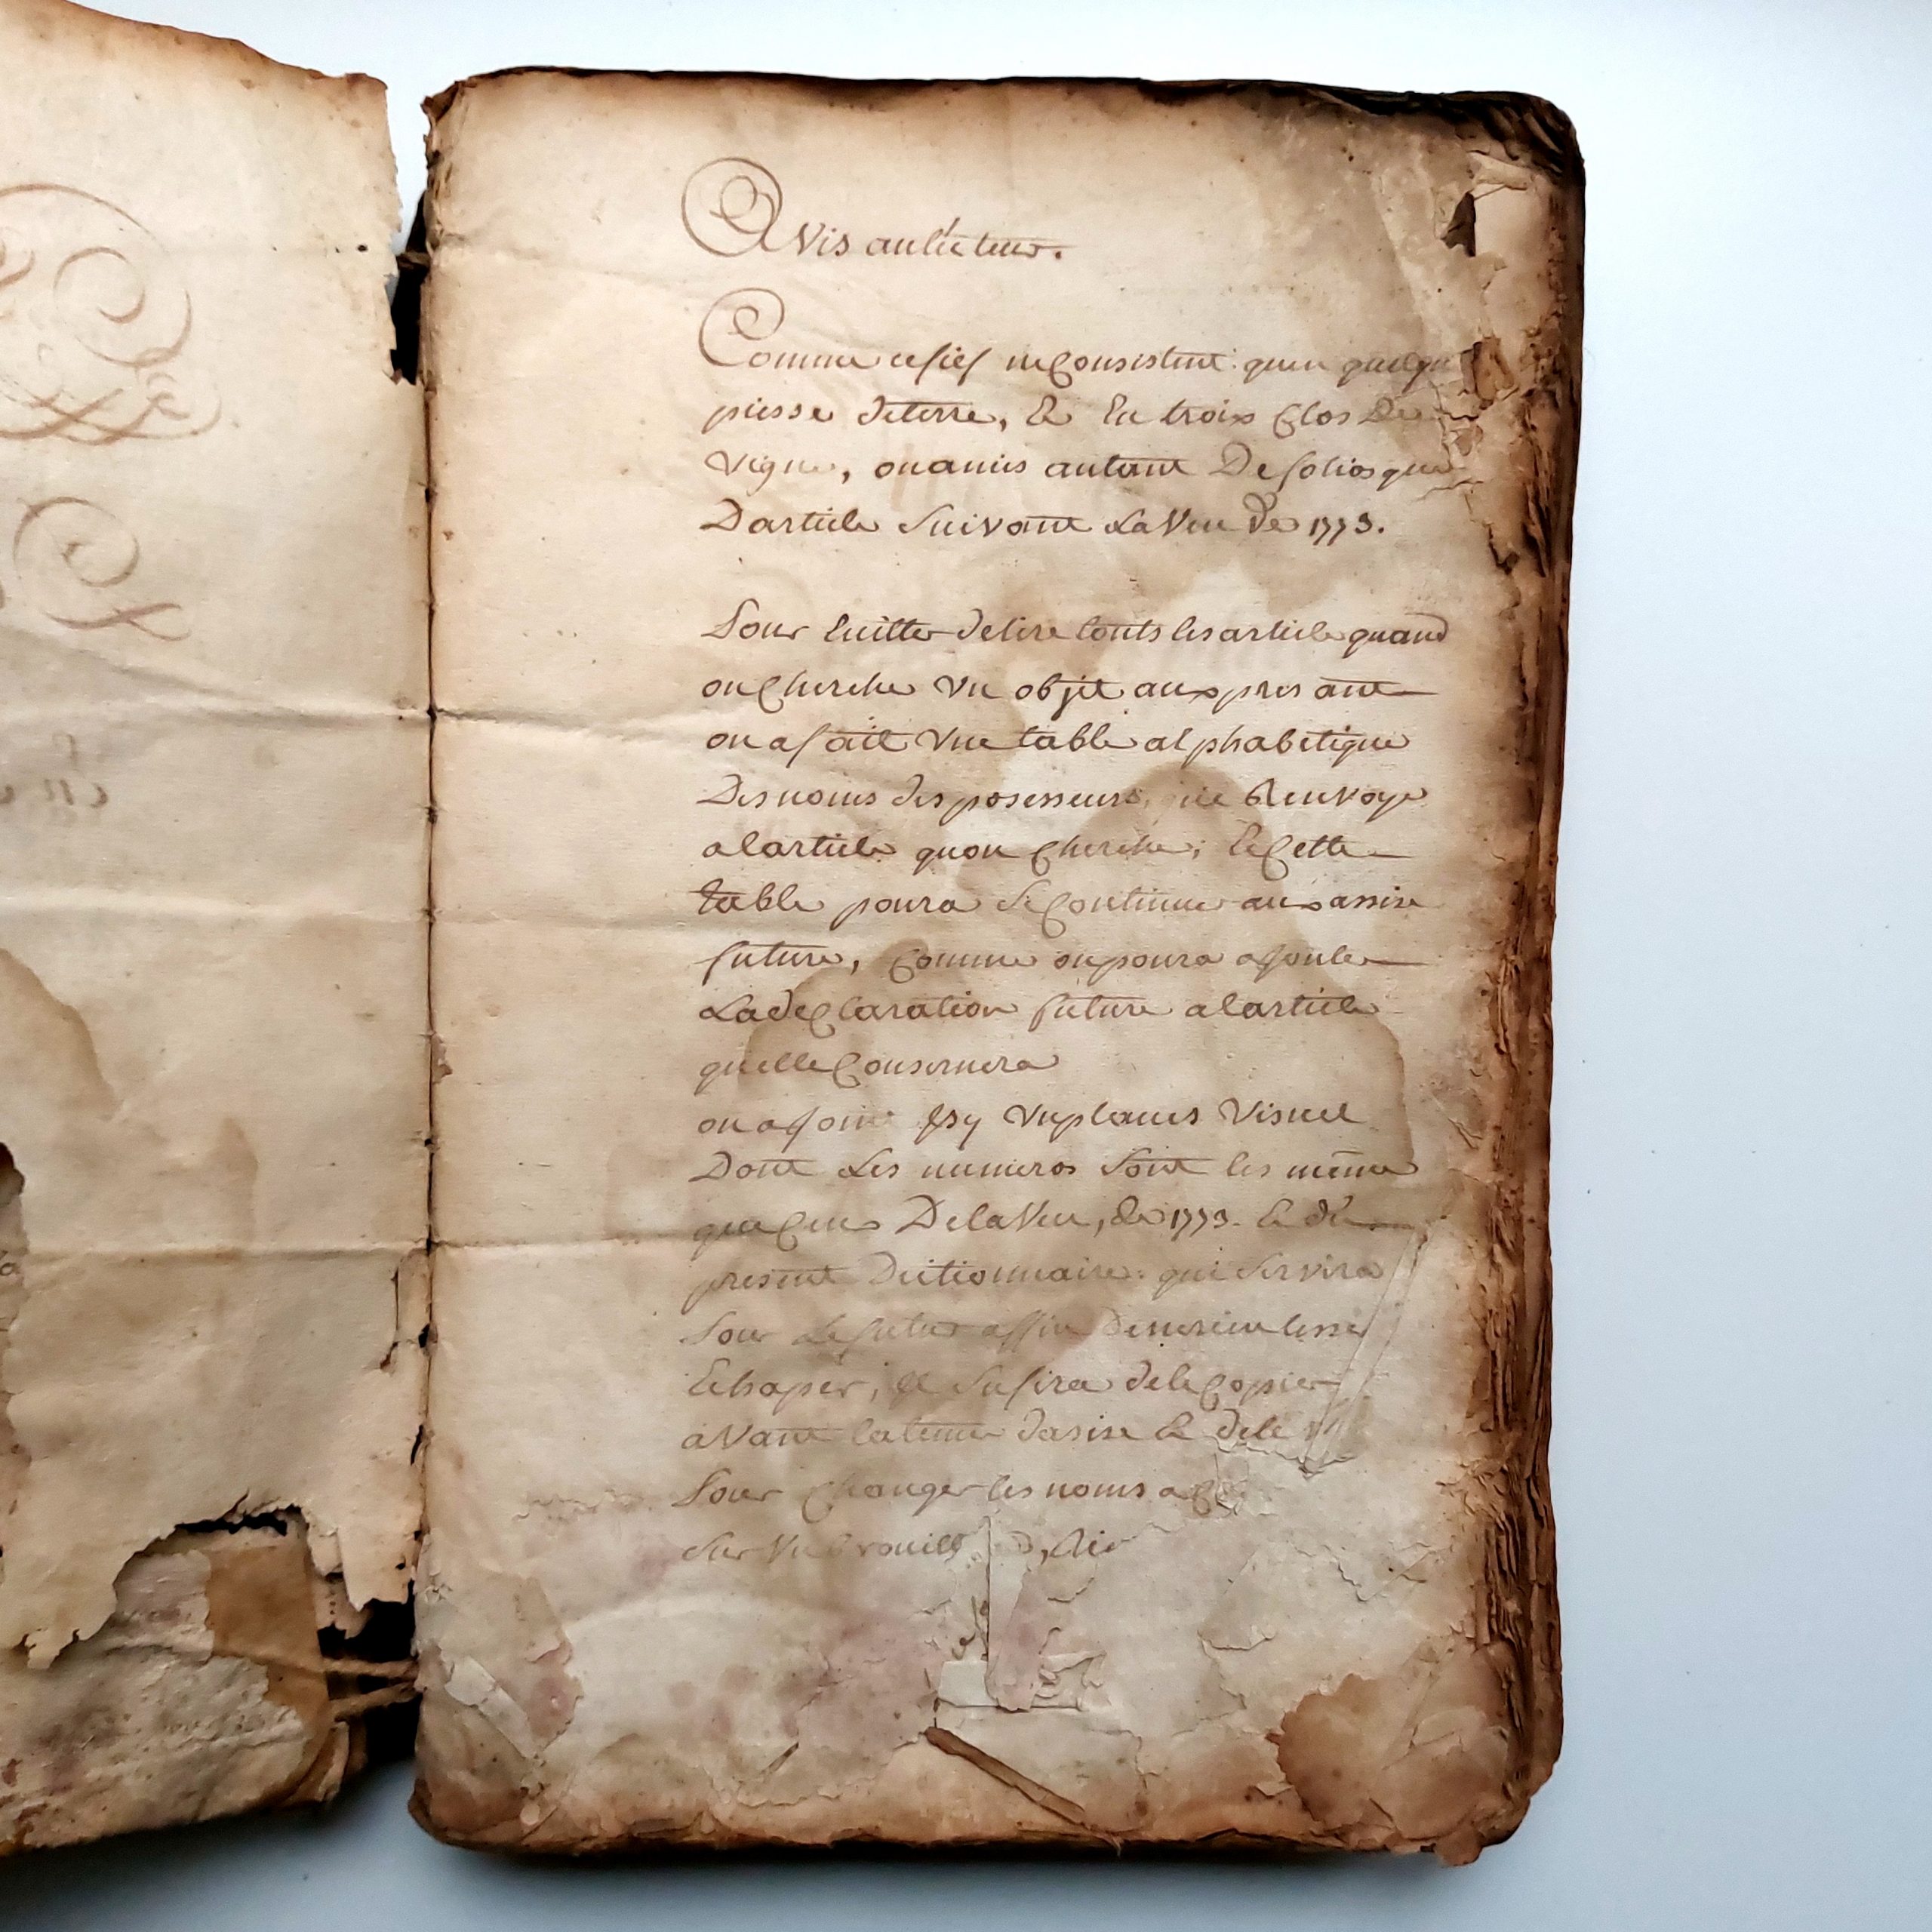 Avis au lécteur.
Comme ce fief ne Consistent quen quelqu
piesse deterre, & En trois Clos De
Vigne, on amis autant De folios que
Darticle Suivant La Veu de 1773.
Pour Eviter delire touts les article quand
on Cherche Un objet aux presant
on a fait Une table alphabetique
Des noms des posesseurs, qui Renvoye
alarticle quon Cherche; Et Cette
table poura Se Continuer aux assise
future, Comme on poura ajouter
La déClaration future alarticle
quelle Consernera
on a join Isy Un plan Visuel
Dont Les numeros Sont les même
que Ceux Dela Veu, de 1773. & du
present Dictionnaire. qui Servira
Pour Le futur affin De ne rien lesser
Echaper, Il Sufira dele Copier
avant la tenue dasise & dele
Pour Changer les noms
Sur Un brouill